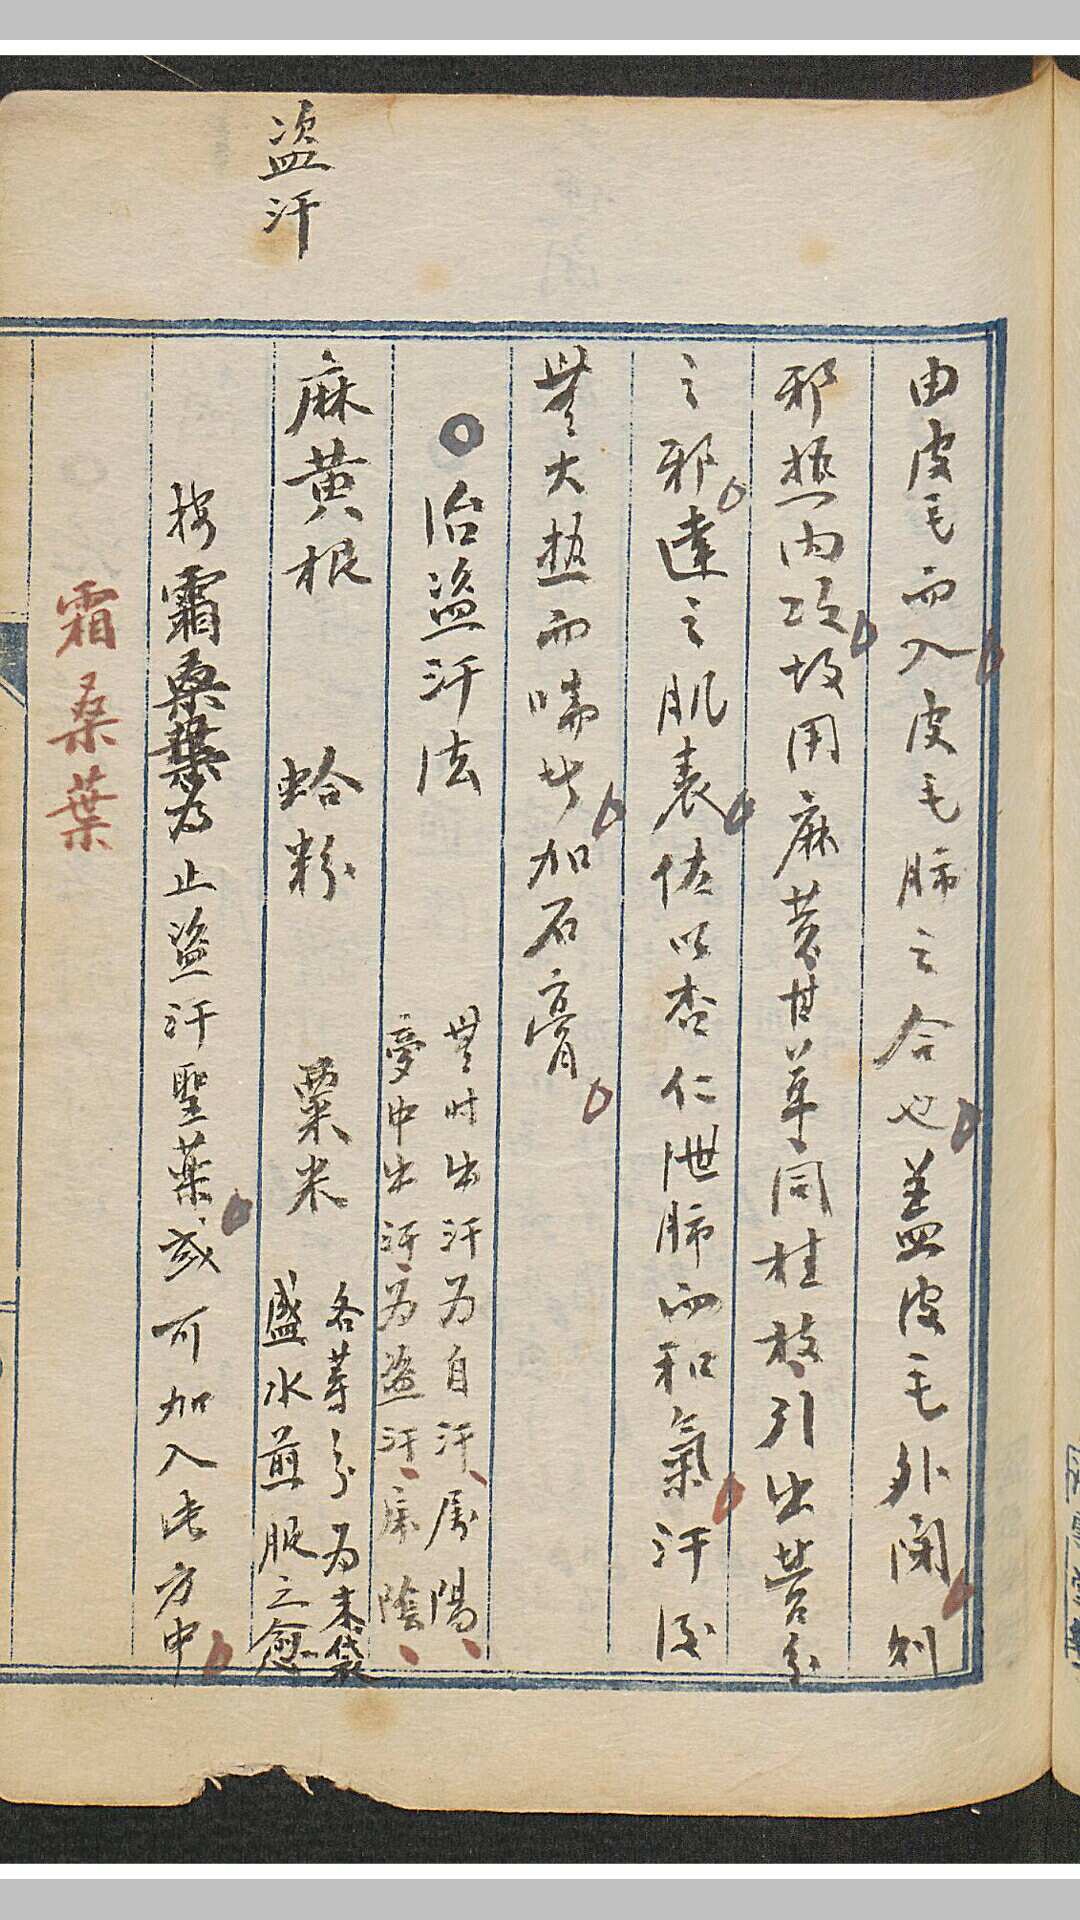 盜汗
由皮毛而入皮毛肺之合也蓋皮毛外闭則
邪热内攻故用麻黄甘草同桂枝引出营分
之邪達之肌表佐以杏仁泄肺而和氣汗後
無大热而喘者加石膏
治盜汗法
無时出汗为自汗属陽
夢中出汗为盜汗属陰
麻黄根 蛤粉 粟米
各等分为末袋
盛水煎服之愈
按霜桑葉为止盜汗聖藥或可加入此方中
霜桑葉